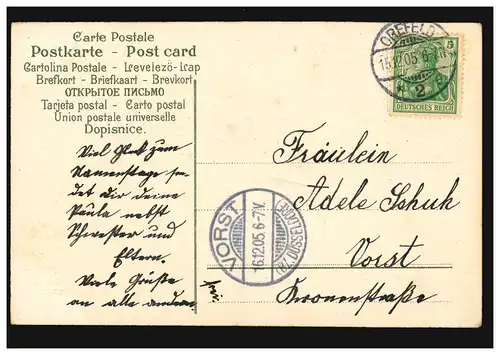 Carte Postale
Postkarte - Post card
Cartolina Postale - Levelező-Lap
Brefkort - Briefkaart - Brevkort
ОТКРЫТОЕ ПИСЬМО
Tarjeta postal - Carto postal
Union postale universelle
Dopisnice.
Viel Glück zum
Namenstage sen-
det Dir deine
Paula nebst
Schwester und
Eltern.
Viele Grüße
an alle andern.
CREFELD
15.12.05
2
5
DEUTSCHES REICH
Fräulein
Adele Schuk
Vorst
Kronenstraße
VORST
16.12.05 6-7V.
(BZ. DÜSSELDORF)